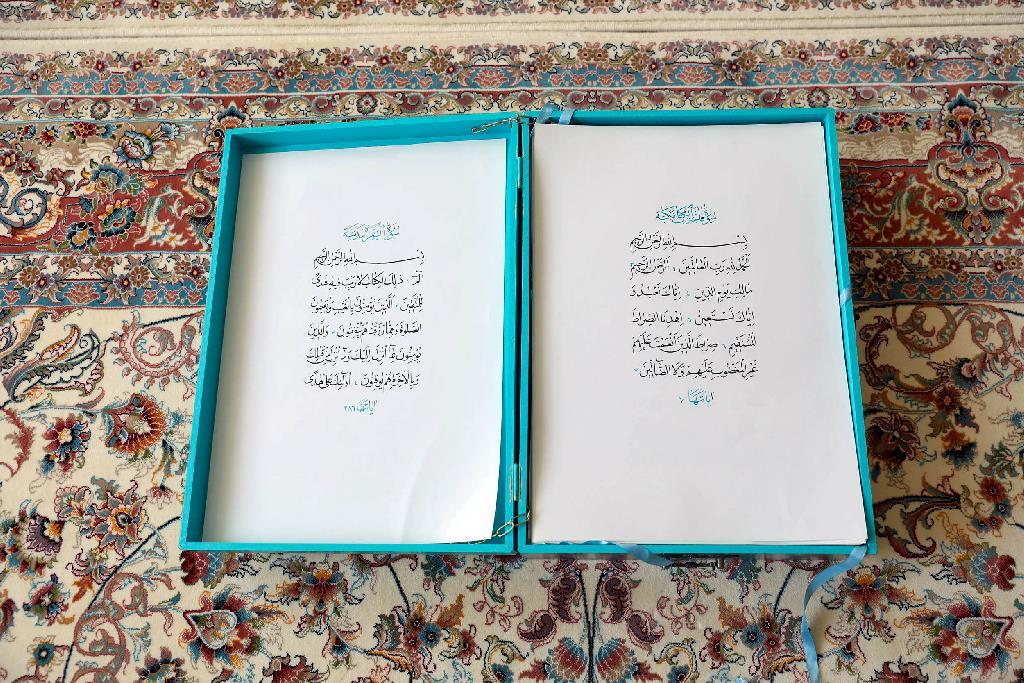 سورة فاتحة الكتاب مكية
بسم الله الرحمن الرحيم
الحمد لله رب العالمين الرحمن الرحيم
مالك يوم الدين اياك نعبد و
اياك نستعين اهدنا الصراط
المستقيم صراط الذين انعمت عليهم
غير المغضوب عليهم ولا الضالين
اياتها ٧
سورة البقرة مدنية
بسم الله الرحمن الرحيم
الم ذلك الكتاب لا ريب فيه هدى
للمتقين الذين يؤمنون بالغيب ويقيمون
الصلوة ومما رزقناهم ينفقون والذين
يؤمنون بما انزل اليك وما انزل من قبلك
وبالاخرة هم يوقنون اولئك على هدى
اياتها ٢٨٦